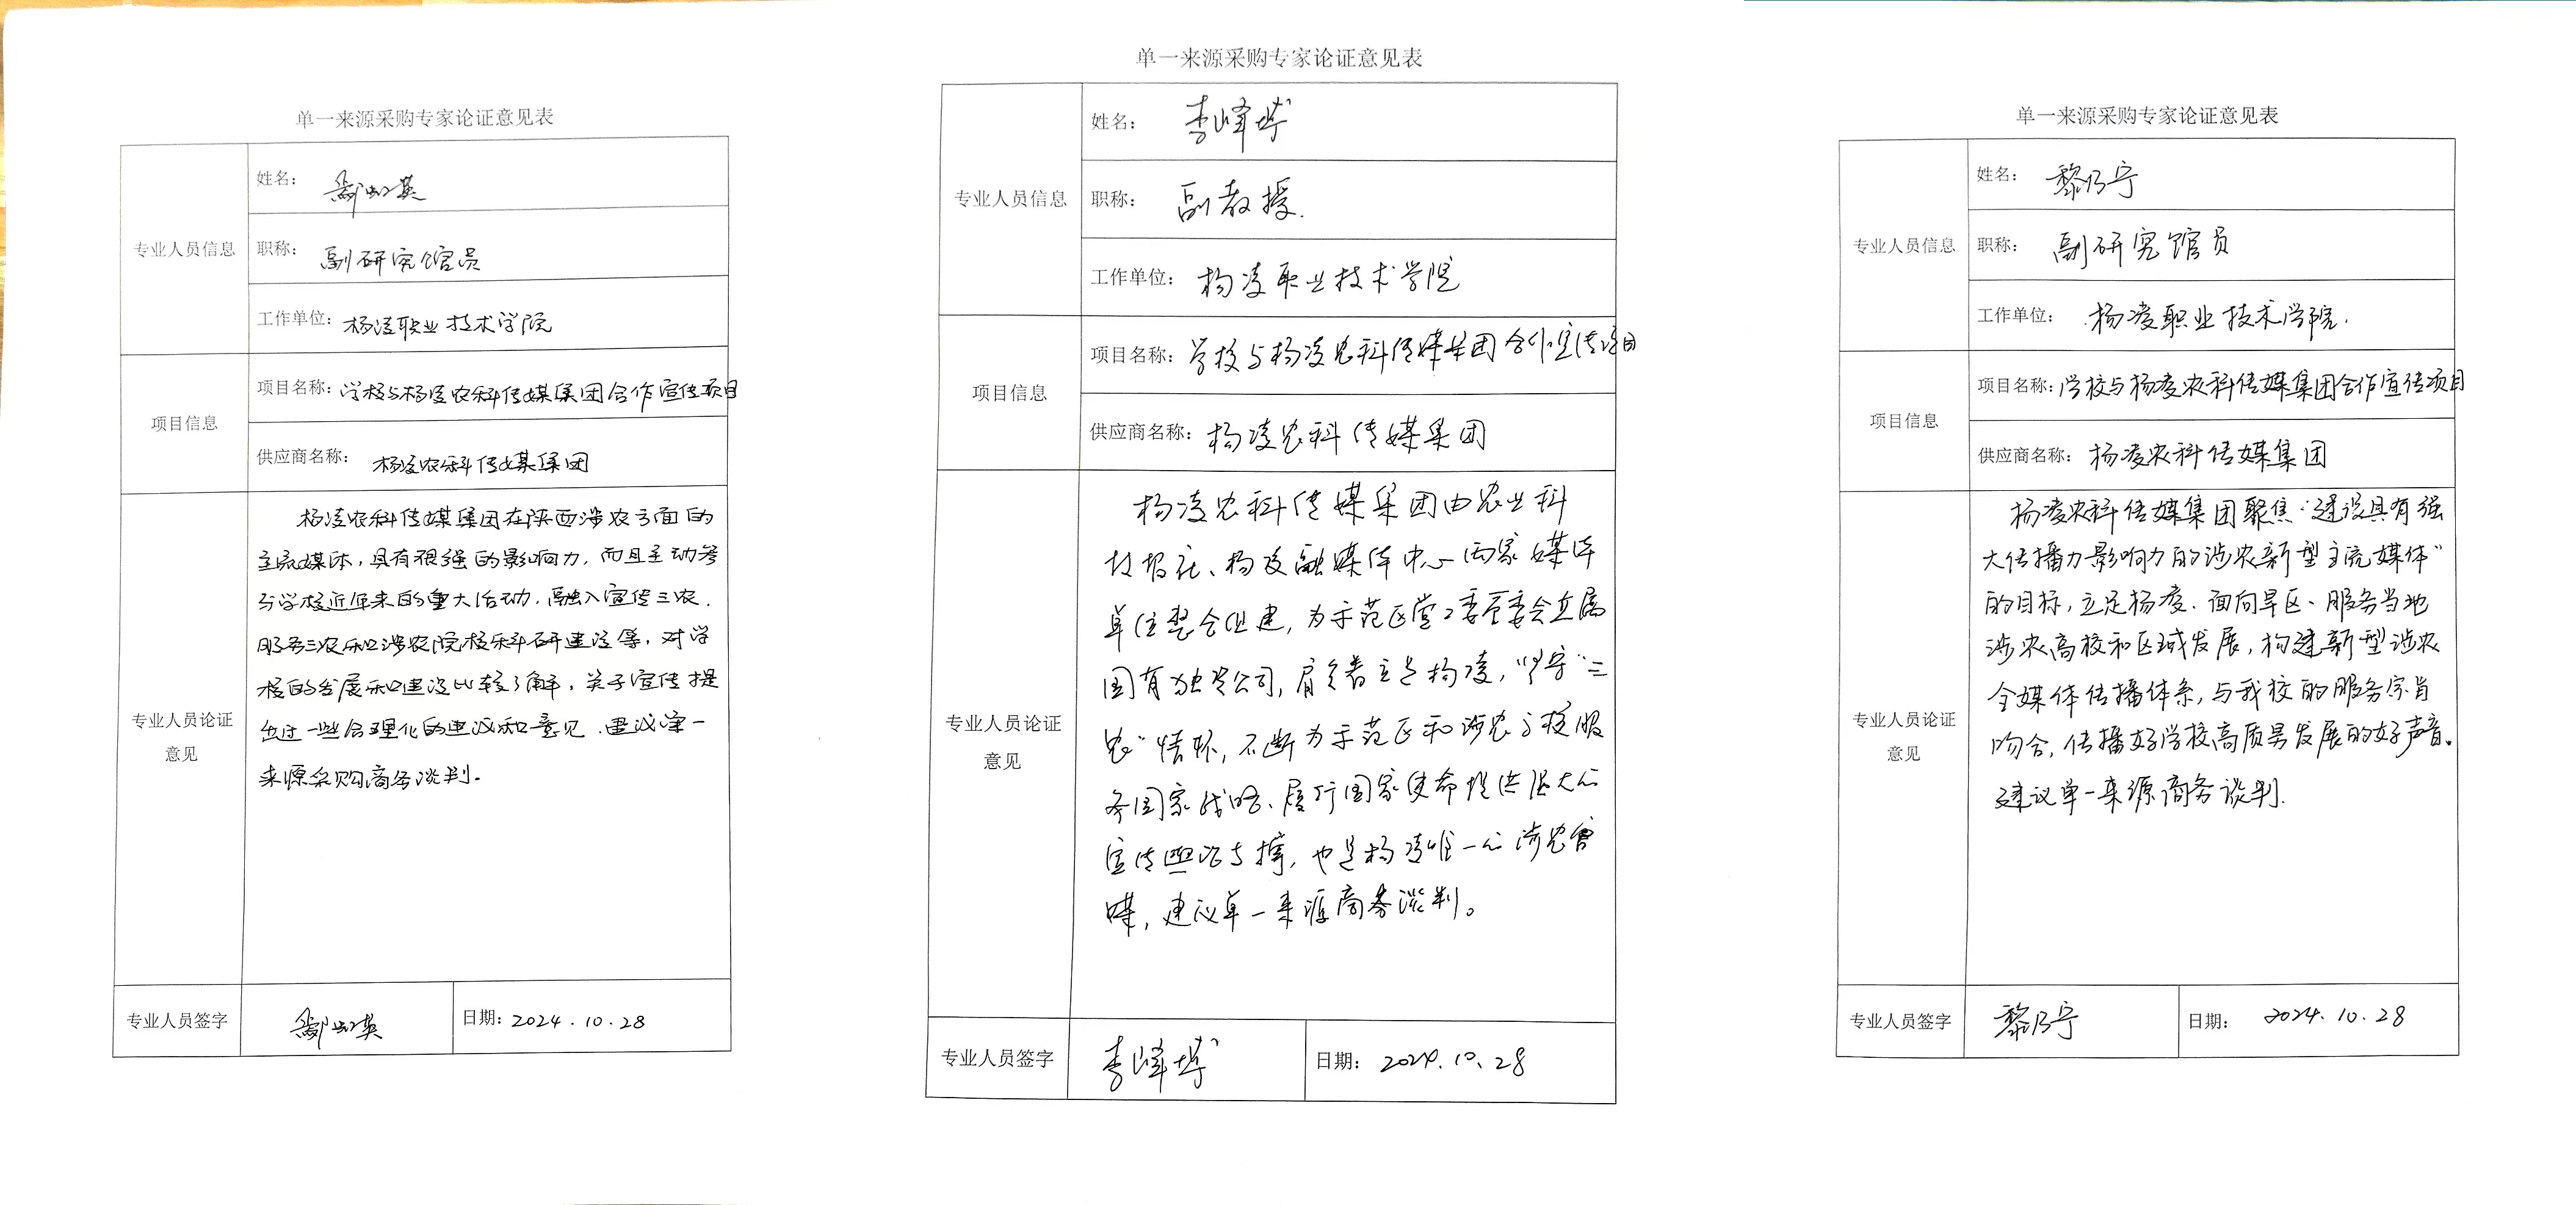 单一来源采购专家论证意见表
专业人员信息
姓名：
职称：副研究馆员
工作单位：杨凌职业技术学院
项目信息
项目名称：学校与杨凌农科传媒集团合作宣传项目
供应商名称：杨凌农科传媒集团
专业人员论证
意见
杨凌农科传媒集团在陕西涉农方面的
主流媒体，具有很强的影响力，而且主动参
与学校近年来的重大活动，融入宣传三农、
服务三农和涉农院校科研建设等，对学
校的发展和建设比较了解，关于宣传提
出过一些合理化的建议和意见，建议单一
来源采购商务谈判。
专业人员签字
日期：2024.10.28
单一来源采购专家论证意见表
专业人员信息
姓名：李峰
职称：副教授
工作单位：杨凌职业技术学院
项目信息
项目名称：学校与杨凌农科传媒集团合作宣传项目
供应商名称：杨凌农科传媒集团
专业人员论证
意见
杨凌农科传媒集团由农业科
技报社、杨凌融媒体中心两家媒体
单位整合组建，为示范区党工委管委会直属
国有独资公司，肩负着立足杨凌，"守"三
农"情怀，不断为示范区和涉农高校服
务国家战略、履行国家使命提供强大的
宣传舆论支撑，也是杨凌唯一的涉农官
媒，建议单一来源商务谈判。
专业人员签字 李峰
日期：2024.10.28
单一来源采购专家论证意见表
专业人员信息
姓名：黎乃宁
职称：副研究馆员
工作单位：杨凌职业技术学院.
项目信息
项目名称：学校与杨凌农科传媒集团合作宣传项目
供应商名称：杨凌农科传媒集团
专业人员论证
意见
杨凌农科传媒集团聚焦"建设具有强
大传播力影响力的涉农新型主流媒体"
的目标，立足杨凌、面向旱区、服务当地
涉农高校和区域发展，构建新型涉农
全媒体传播体系，与我校的服务宗旨
吻合，传播好学校高质量发展的好声音。
建议单一来源商务谈判.
专业人员签字 黎乃宁
日期：2024.10.28